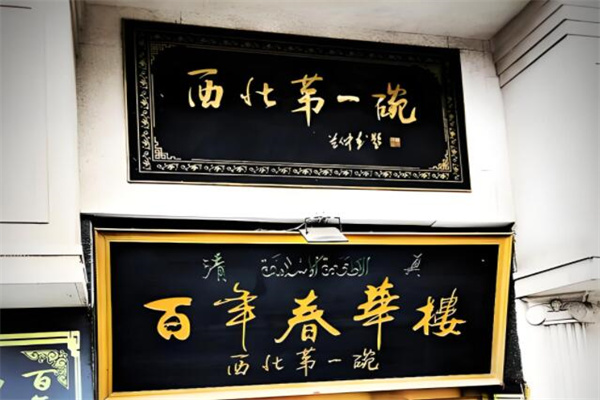 西北第一碗
清 الأطعمة الإسلامية 真
百年春華樓
西北第一碗
百年